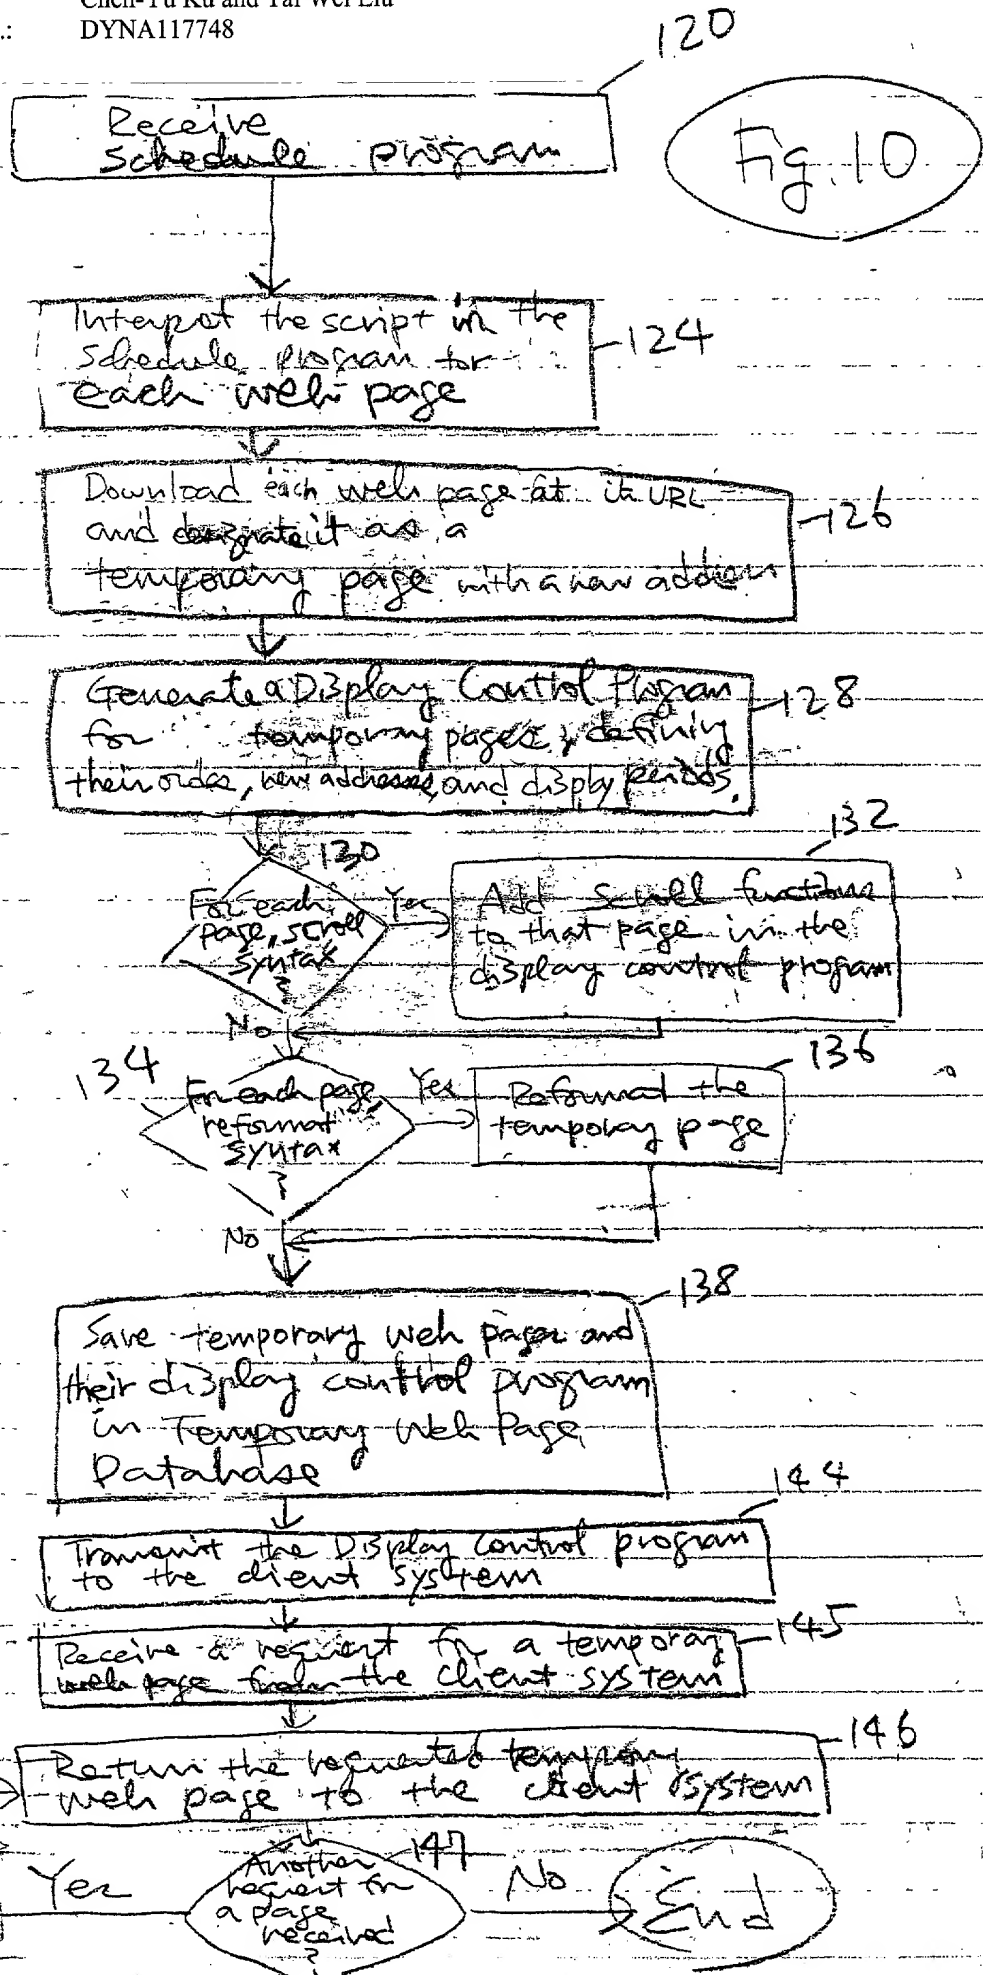 Chen-Yu Ku and Tai Wei Liu
.: DYNA117748
120
Receive
schedule program
Fig. 10
Interpret the script in the
schedule program for
each web page
124
Download each web page at its URL
and designate it as a
temporary page with a new address
126
Generate a Display Control Program
for temporary pages, defining
their order, new addresses, and display periods.
128
130
For each
page, scroll
syntax
?
Yes
No
132
Add scroll functions
to that page in the
display control program
134
For each page,
reformat
syntax
?
Yes
No
136
Reformat the
temporary page
138
Save temporary web pages and
their display control program
in Temporary Web Page
Database
144
Transmit the Display Control program
to the client system
145
Receive a request for a temporary
web page from the client system
146
Return the requested temporary
web page to the client system
147
Another
request for
a page
received
?
Yes
No
End